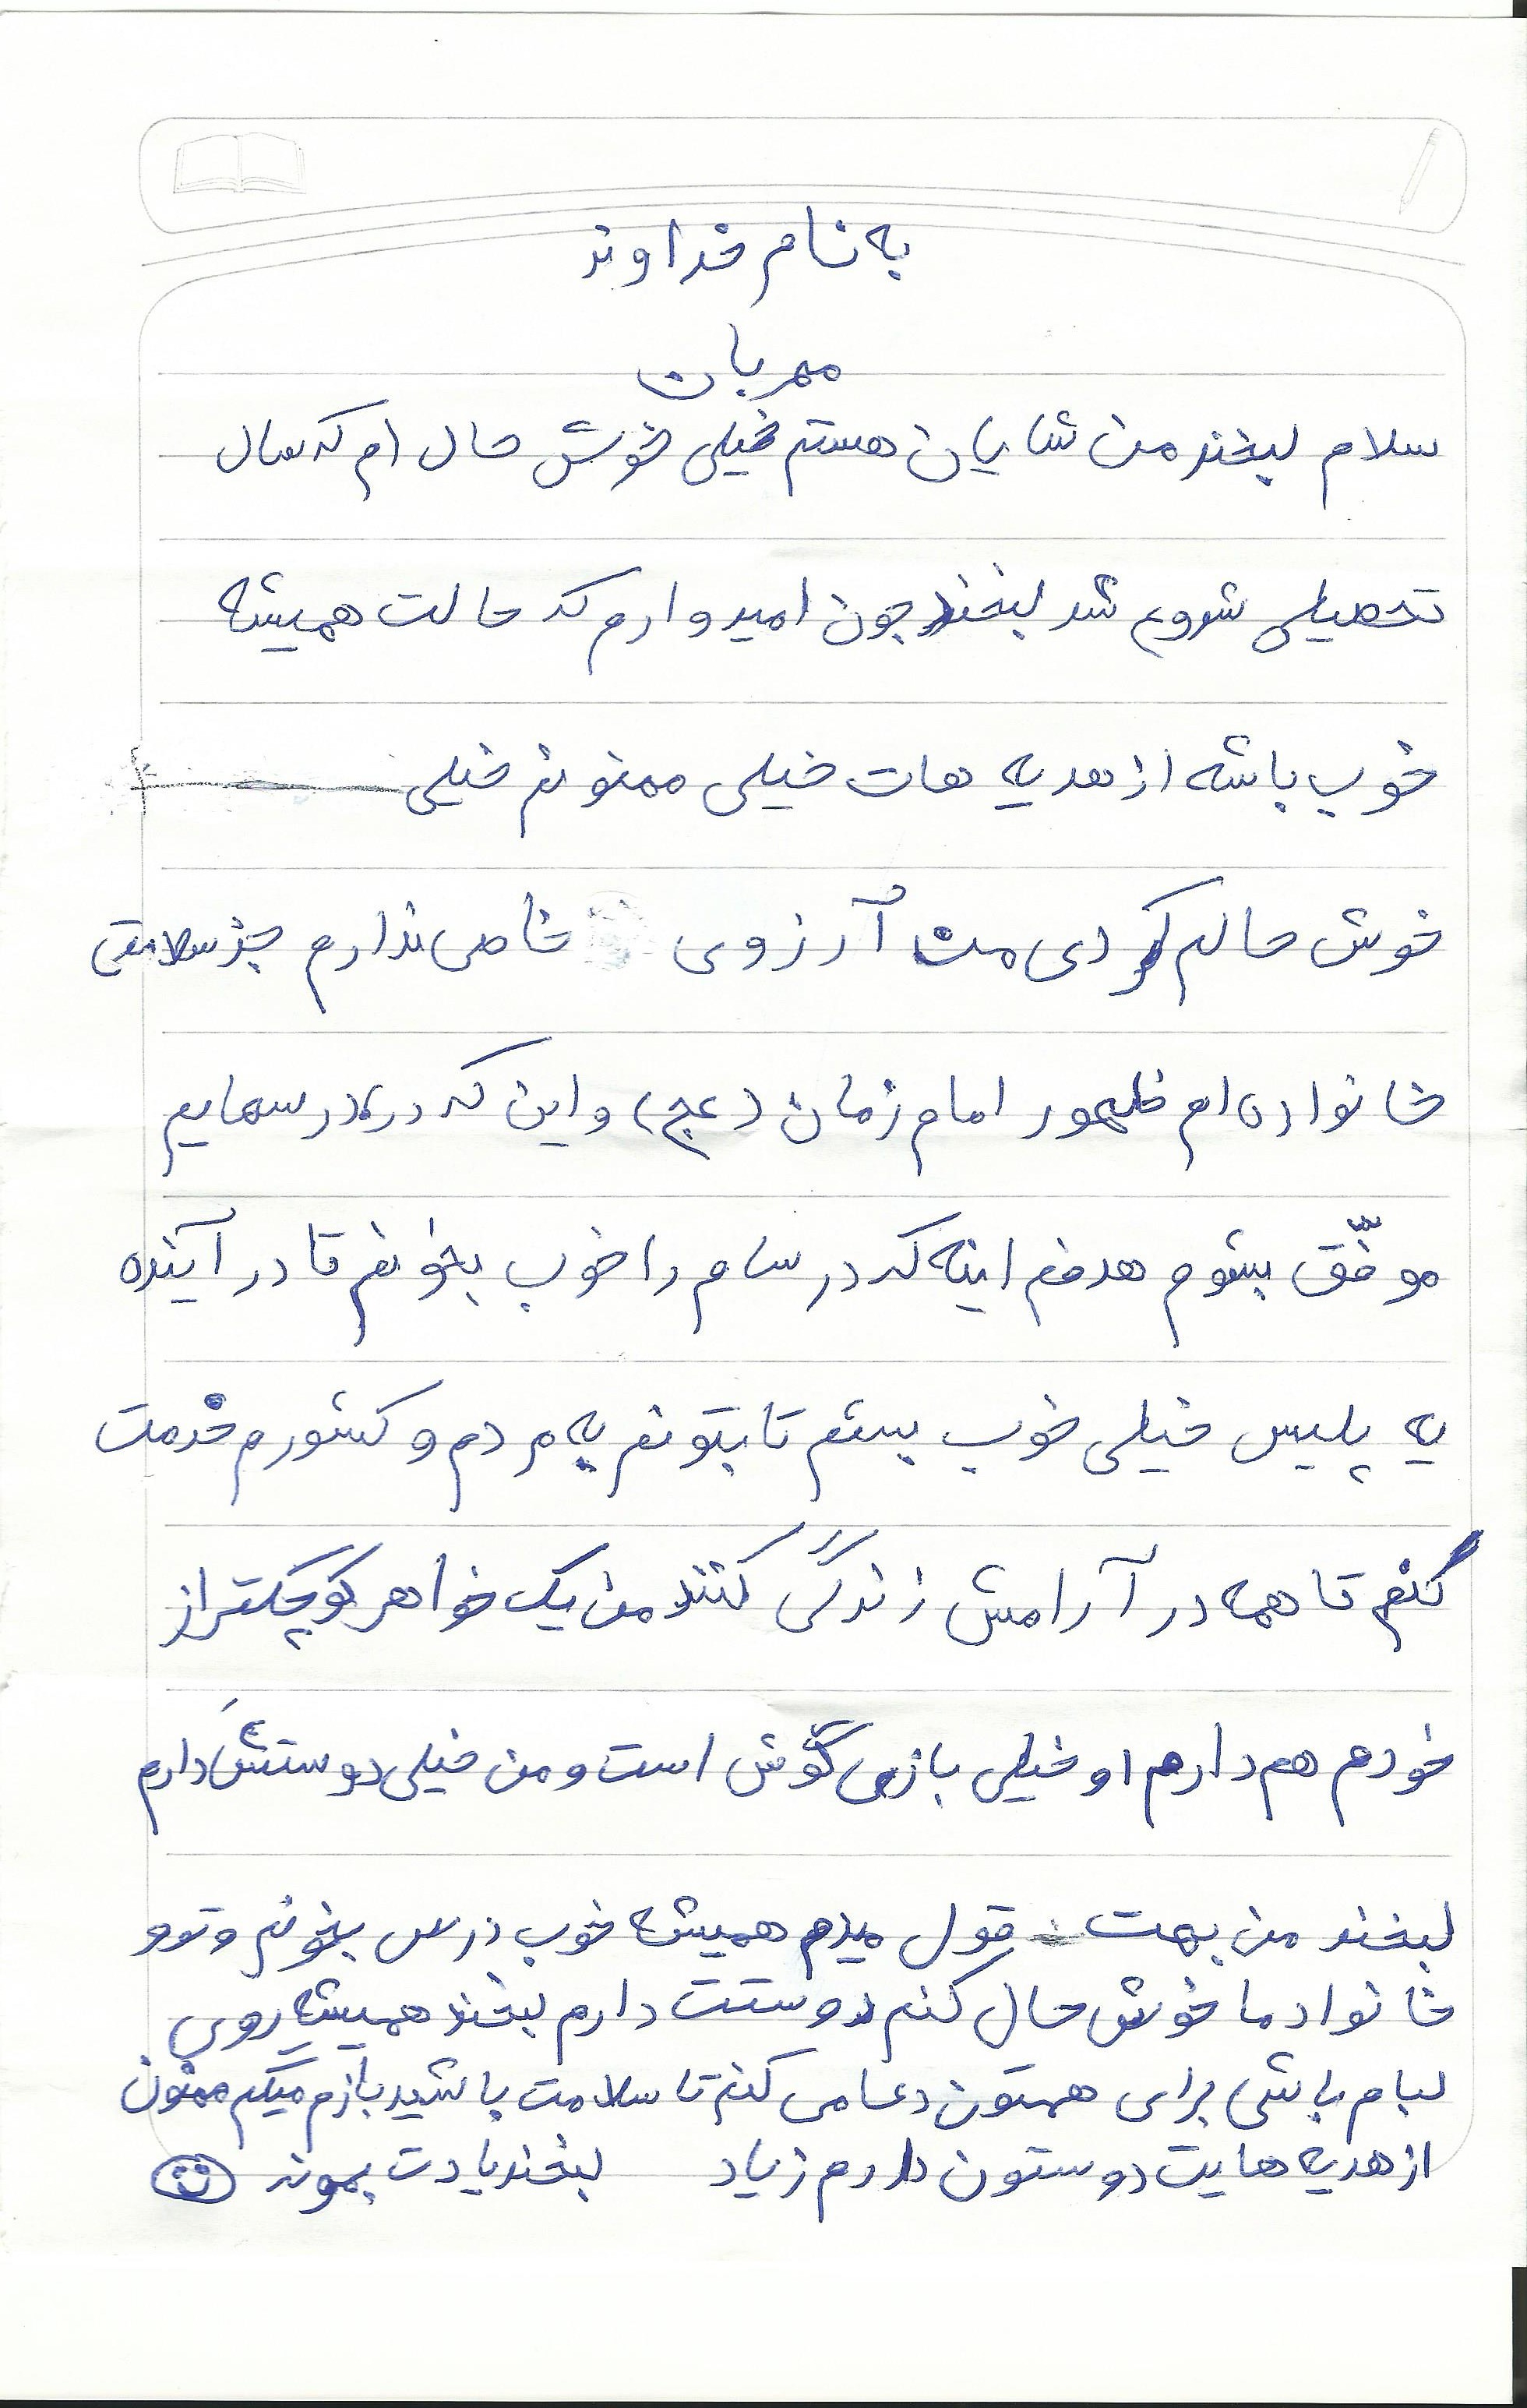 به نام خداوند
مهربان
سلام لبخند من شایان هستم خیلی خوش حال ام که سال
تحصیلی شروع شد لبخند جون امیدوارم که حالت همیشه
خوب باشه از هدیه هات خیلی ممنونم خیلی
خوش حالم کردی من آرزوی خاصی ندارم جز سلامتی
خانواده ام ظهور امام زمان (عج) و این که در درسهایم
موفّق بشوم هدفم اینه که درسام را خوب بخونم تا در آینده
یه پلیس خیلی خوب بشم تا بتونم به مردم و کشورم خدمت
کنم تا همه در آرامش زندگی کنند من یک خواهر کوچکتر از
خودم هم دارم او خیلی بازی گوش است و من خیلی دوستَش دارم
لبخند من بهت قول میدم همیشه خوب درس بخونم و تو و
خانوادما خوش حال کنم دوستت دارم لبخند همیشه روی
لبام باشی برای همتون دعا می کنم تا سلامت باشید بازم میگم ممنون
از هدیه هایت دوستون دارم زیاد لبخند یادت بمونه